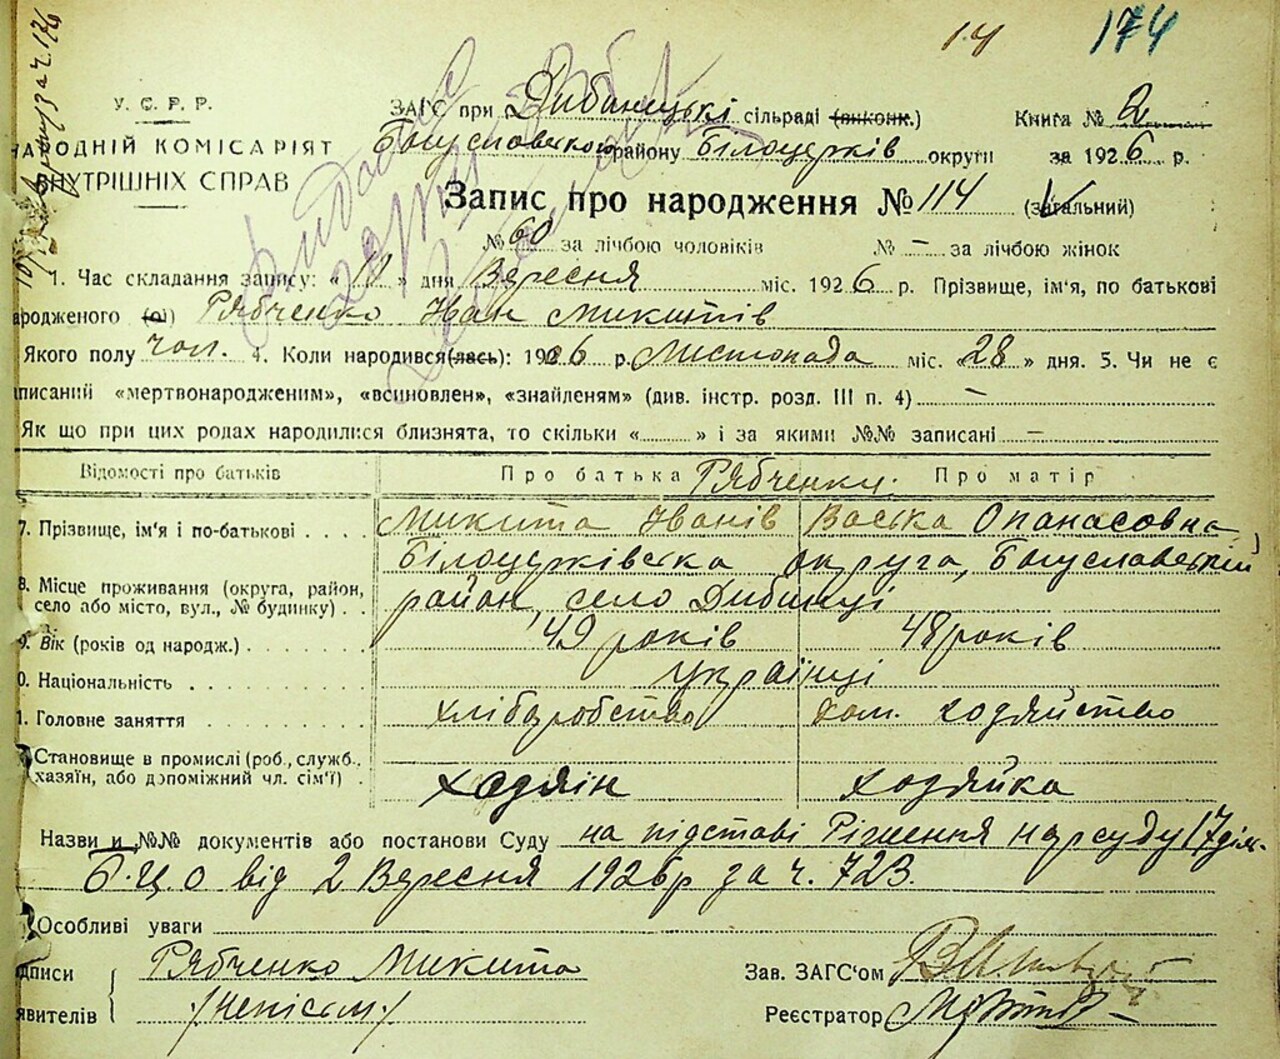 14 174
У. С. Р. Р.
НАРОДНІЙ КОМІСАРІЯТ
ВНУТРІШНІХ СПРАВ
ЗАГС при Дибинецькі сільраді (виконк.) Книга № 2
Богуславського району Білоцерків округи за 1926 р.
Запис про народження № 114 (загальний)
№ 60 за лічбою чоловіків № – за лічбою жінок
1. Час складання запису: «11» дня Вересня міс. 1926 р. Прізвище, ім'я, по батькові
народженого (ої) Рябченко Іван Микитів
Якого полу чол. 4. Коли народився(лась): 1906 р. Листопада міс. «28» дня. 5. Чи не є
записаний «мертвонародженим», «всиновлен», «знайденям» (див. інстр. розд. III п. 4) –
Як що при цих родах народилися близнята, то скільки «......» і за якими №№ записані –
Відомості про батьків Про батька Рябченки. Про матір
7. Прізвище, ім'я і по-батькові Микита Іванів Васька Опанасовна
Білоцерківська округа, Богуславський
8. Місце проживання (округа, район, село або місто, вул., № будинку) район, село Дибинці
9. Вік (років од народж.) 49 років 48 років
0. Національність Українці
1. Головне заняття хліборобство дом. ходяйство
Становище в промислі (роб., служб., хазяїн, або допоміжний чл. сім'ї) ходяїн ходяйка
Назви и №№ документів або постанови Суду на підставі Рішення нарсуду 17 діль.
Б.Ц.О від 2 Вересня 1926р за ч. 723.
Особливі уваги
дписи Рябченко Микита Зав. ЗАГС'ом
явителів /неписьм/ Реєстратор